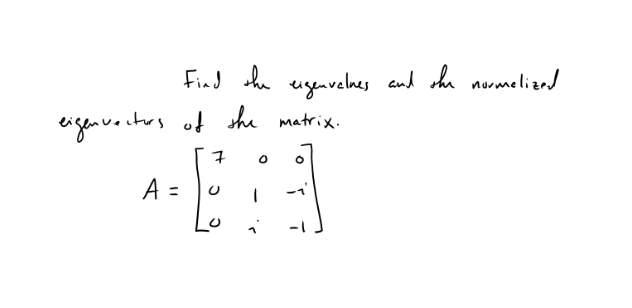 Find the eigenvalues and the normalized
eigenvectors of the matrix.
7 0 0
A = 0 1 -i
0 i -1